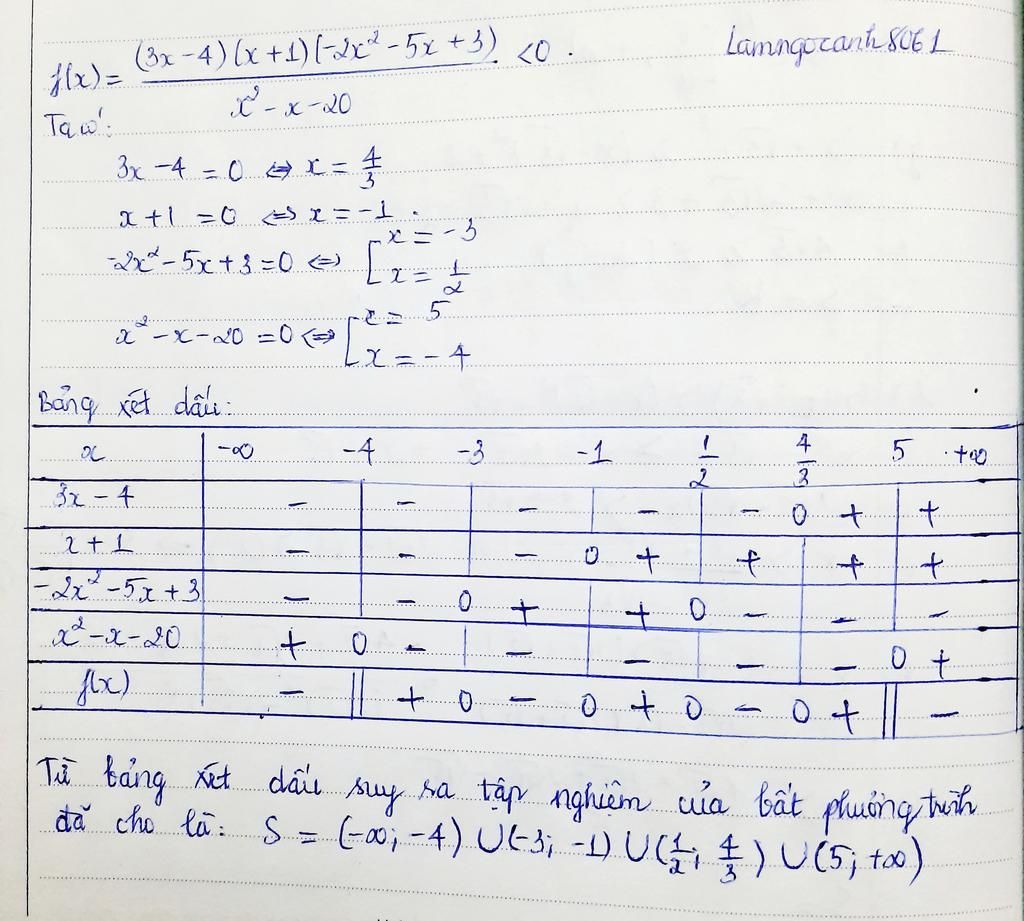 f(x) = (3x-4)(x+1)(-2x² - 5x + 3) / x² - x - 20 < 0 .
Lamngocanh8061
Ta có:
3x - 4 = 0 ⇔ x = 4/3
x + 1 = 0 ⇔ x = -1 .
-2x² - 5x + 3 = 0 ⇔ [ x = -3
x = 1/2
x² - x - 20 = 0 ⇔ [ x = 5
x = -4
Bảng xét dấu:
x | -∞ -4 -3 -1 1/2 4/3 5 +∞
3x - 4 | - | - | - | - | - 0 + | +
x + 1 | - | - | - 0 + | + | + | +
-2x² - 5x + 3 | - | - 0 + | + 0 - | - | -
x² - x - 20 | + 0 - | - | - | - | - 0 +
f(x) | - || + 0 - 0 + 0 - 0 + || -
Từ bảng xét dấu suy ra tập nghiệm của bất phương trình
đã cho là: S = (-∞; -4) ∪ (-3; -1) ∪ (1/2; 4/3) ∪ (5; +∞)